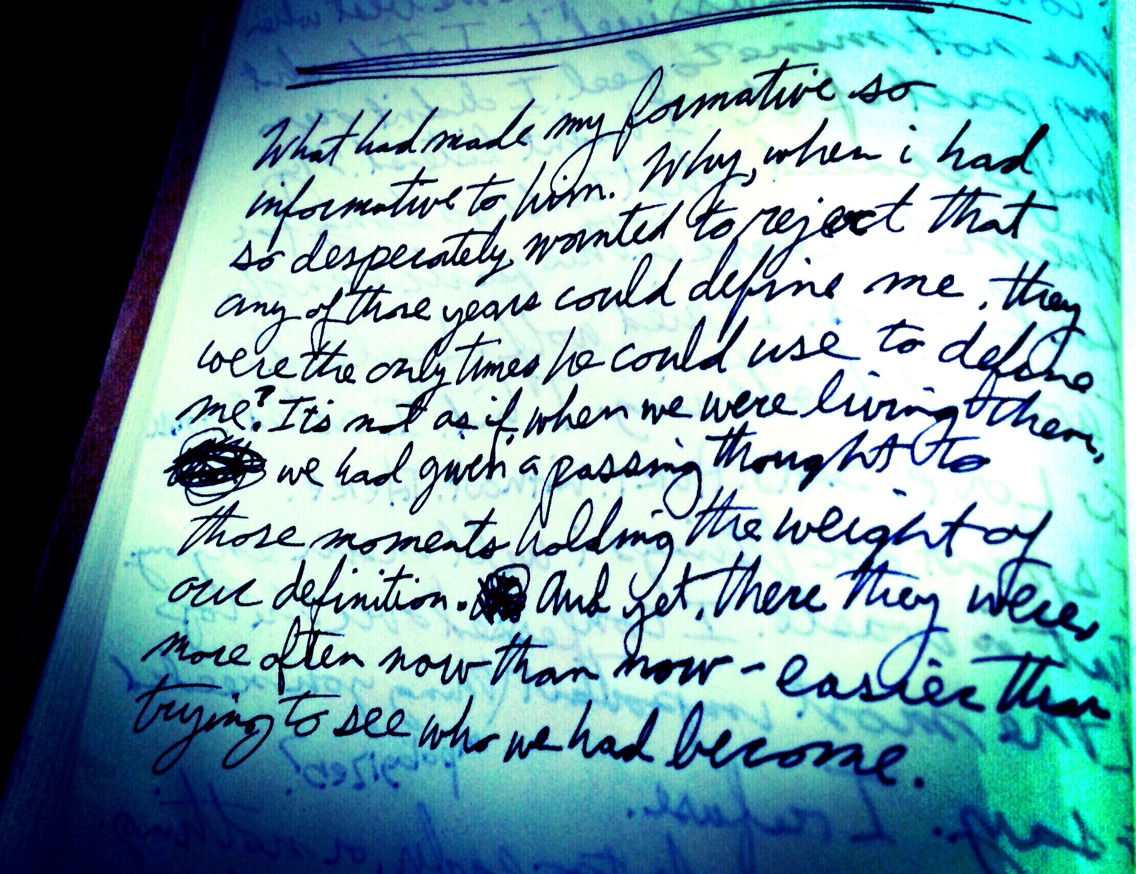 What had made my formative so
informative to him. Why, when i had
so desperately wanted to reject that
any of those years could define me, they
were the only times he could use to define
me? It's not as if, when we were living them,
we had given a passing thought to
those moments holding the weight of
our definition. And yet, there they were,
more often now than now - easier than
trying to see who we had become.